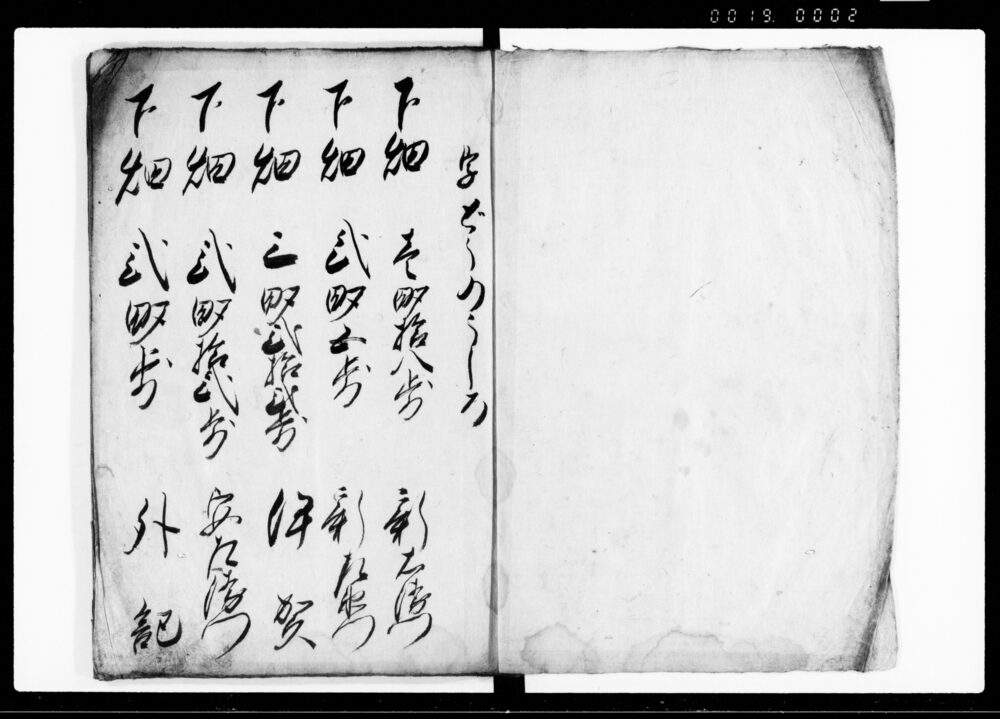 0019. 0002
字どうのうしろ
下畑 壱畝拾八歩 新右衛門
下畑 弐畝五歩 新左衛門
下畑 三畝弐拾弐歩 伊賀
下畑 弐畝拾弐歩 安左衛門
下畑 弐畝歩 外記